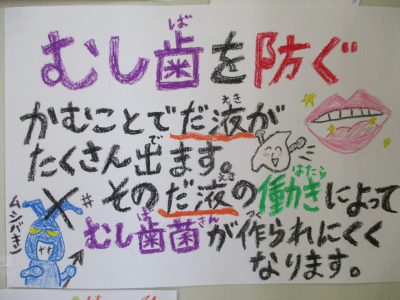 むし歯を防ぐ
かむことでだ液が
たくさん出ます。
そのだ液の働きによって
むし歯菌が作られにくく
なります。
ムシバキン